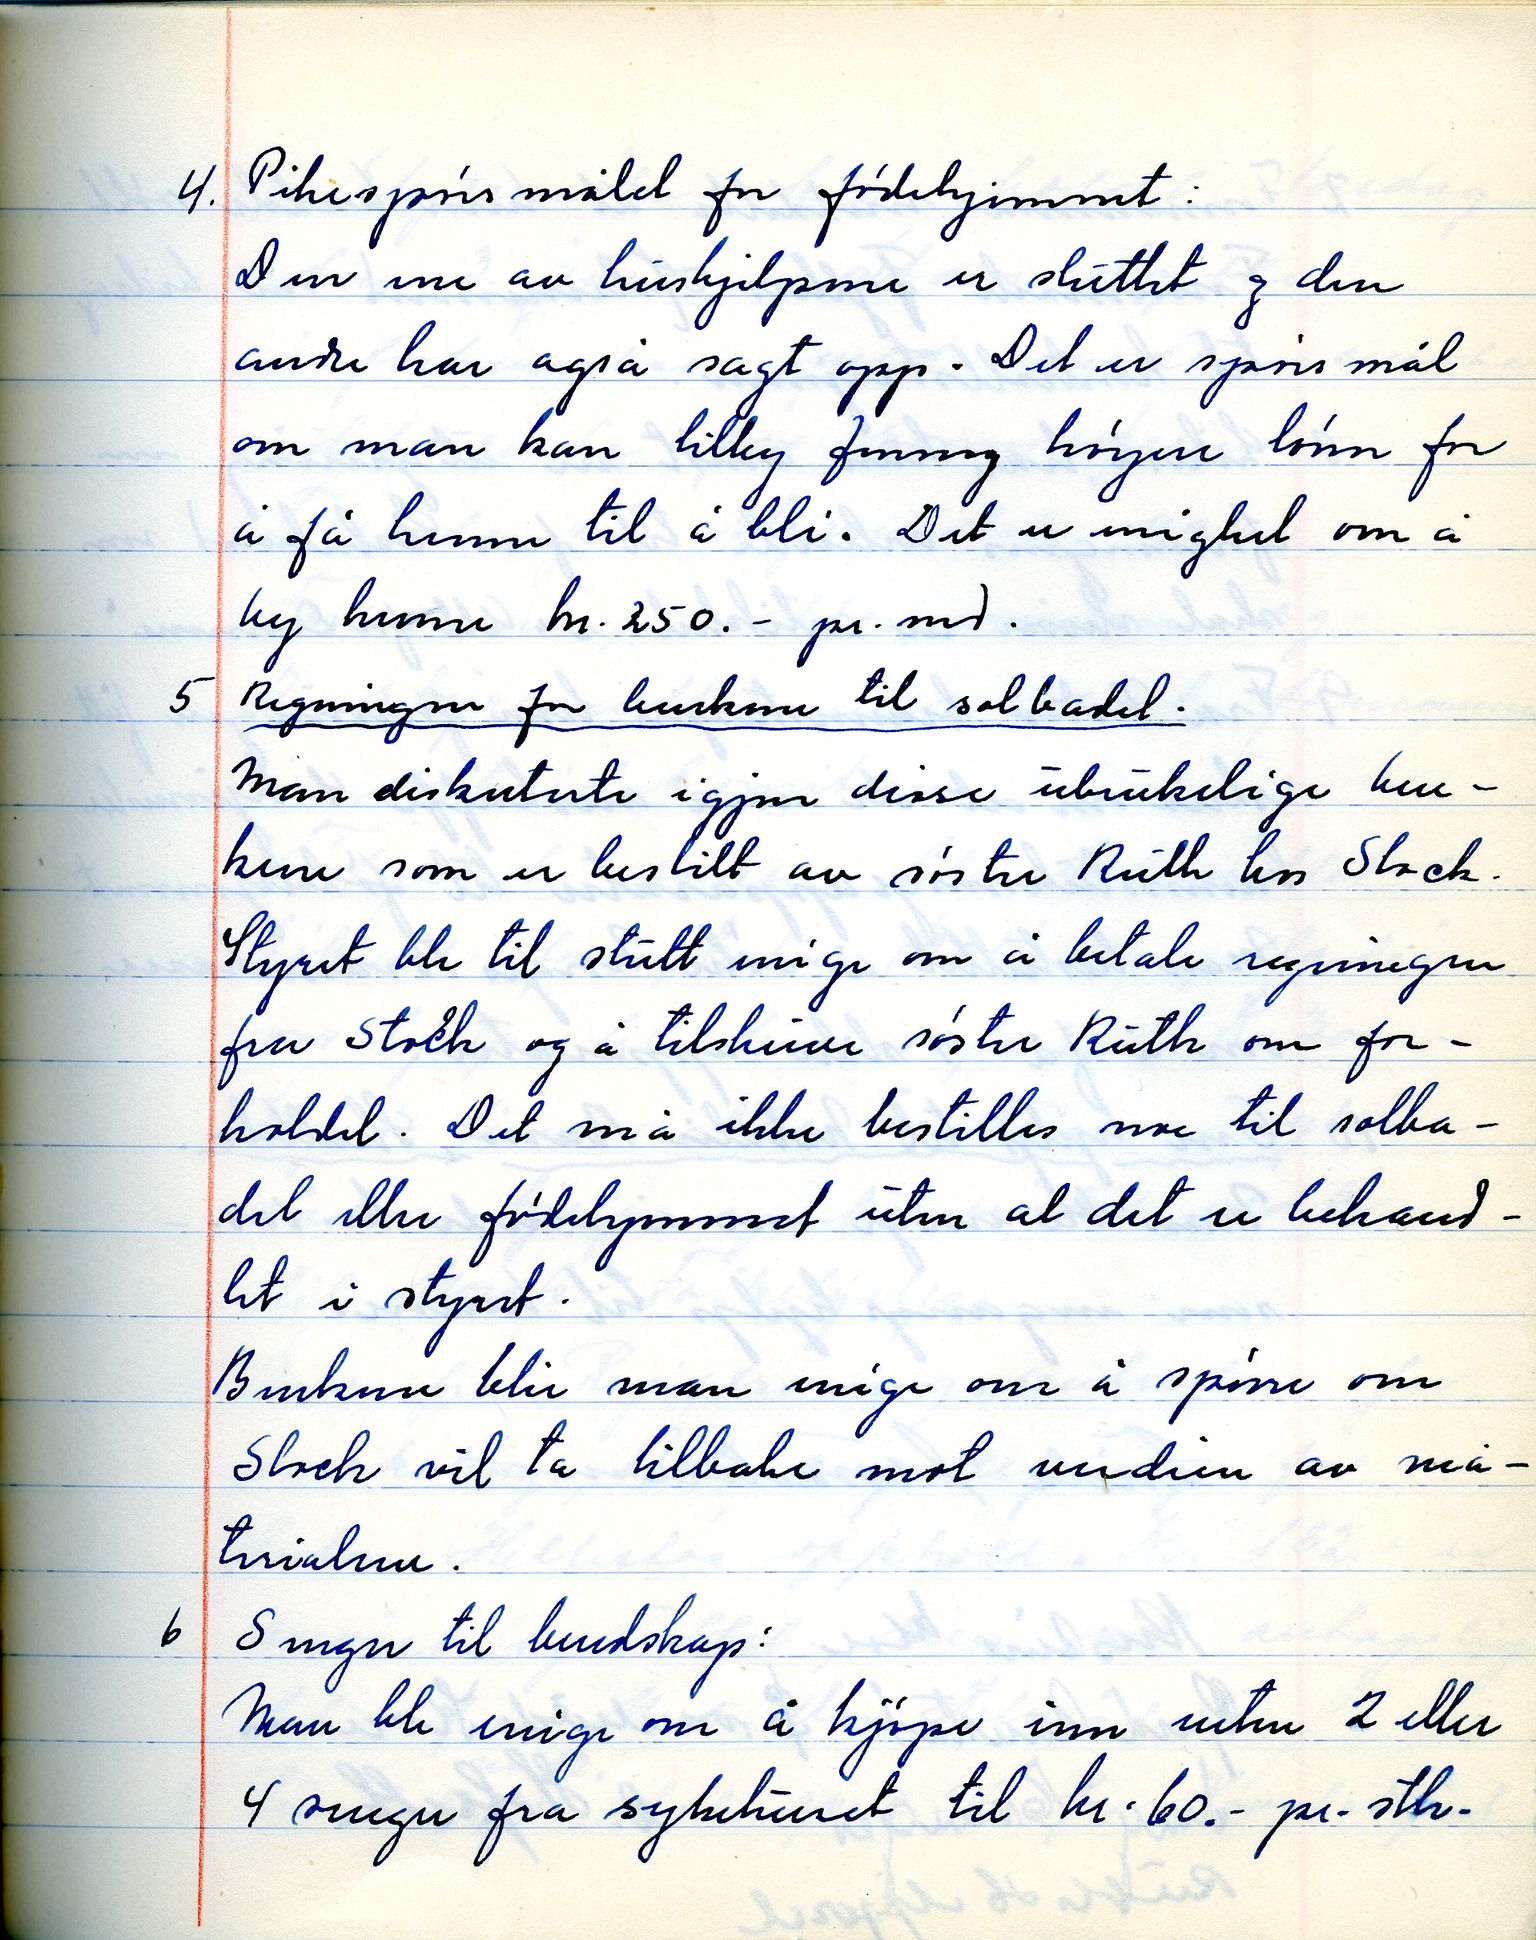 4. Pikespørsmålet for fødehjemmet:
Den ene av hushjelpene er sluttet og den
andre har også sagt opp. Det er spørsmål
om man kan tilby henne høyere lønn for
å få henne til å bli. Det er enighet om å
by henne kr. 250.- pr. md.
5 Regningen for benkene til solbadet.
Man diskuterte igjen disse ubrukelige ben-
kene som er bestilt av søster Ruth hos Stock.
Styret ble til slutt enige om å betale regningen
fra Stock og å tilskrive søster Ruth om for-
holdet. Det må ikke bestilles noe til solba-
det eller fødehjemmet uten at det er behand-
let i styret.
Benkene blir man enige om å spørre om
Stock vil ta tilbake mot verdien av ma-
terialene.
6 Senger til beredskap:
Man ble enige om å kjøpe inn enten 2 eller
4 senger fra sykehuset til kr. 60.- pr. stk.